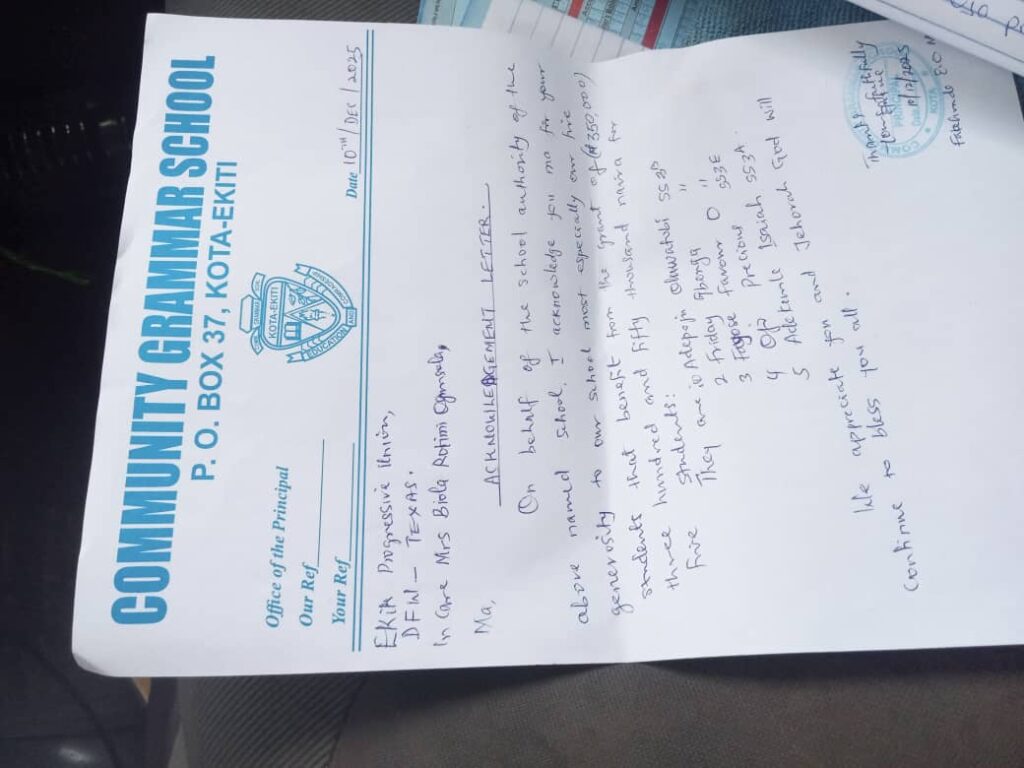 COMMUNITY GRAMMAR SCHOOL
P. O. BOX 37, KOTA-EKITI
KOTA-EKITI
EDUCATION AND
Office of the Principal
Date 10TH/DEC/2025
Our Ref
Your Ref
Ekiti Progressive Union,
DFW - TEXAS.
In Care Mrs Biola Rotimi
Ma,
ACKNOWLEDGEMENT LETTER.
On behalf of the school authority of the
above named school, I acknowledge you ma for your
generosity to our school most especially our five
students that benefit from the grant of (₦350,000)
three hundred and fifty thousand naira for
five students:
They are (1) Adepoju Oluwatobi SS3D
2 Friday Gbenga "
3 Fagose Favour O SS3E
4 Ojo Precious SS3A.
5 Adekemile Isaiah
We appreciate you and Jehovah God will
continue to bless you all.
Thanks
Yours faithfully
10/12/2025
KOTA